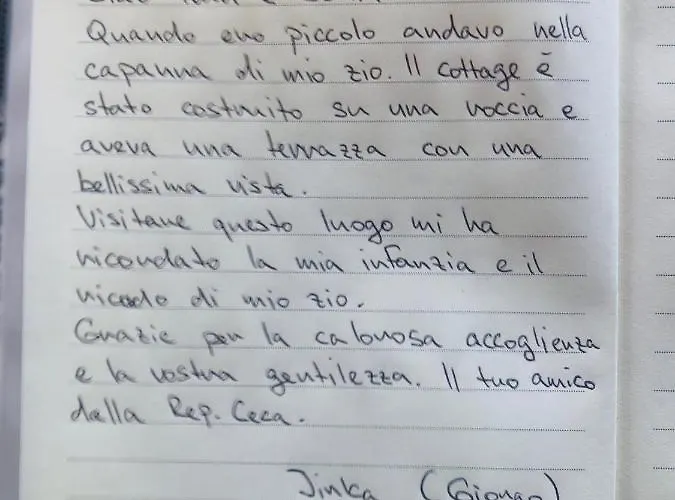 Quando ero piccolo andavo nella
capanna di mio zio. Il cottage è
stato costruito su una roccia e
aveva una terrazza con una
bellissima vista.
Visitare questo luogo mi ha
ricordato la mia infanzia e il
ricodo di mio zio.
Grazie per la calorosa accoglienza
e la vostra gentilezza. Il tuo amico
dalla Rep. Ceca.